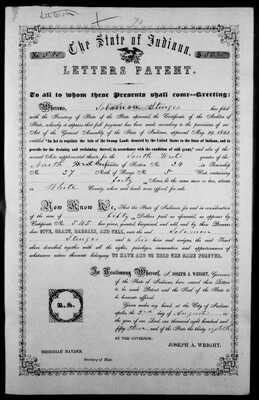 The State of Indiana.
LETTERS PATENT.
To all to whom these Presents shall come—Greeting:
Whereas, Solomon Sturges has filed
with the Secretary of State of the State aforesaid the Certificate of the Auditor of
State, whereby it appears that full payment has been made according to the provisions of an
Act of the General Assembly of the State of Indiana, approved May 29, 1852,
entitled "An act to regulate the Sale of the Swamp Lands donated by the United States to the State of Indiana, and to
provide for the draining and reclaiming thereof, in accordance with the condition of said grant," and acts of the
several dates supplemental thereto, for the South West quarter of the
North West quarter of Section No. 24 Township
No. 27 North of Range No. 5 West containing
forty Acres be the same more or less, situate
in White County, when said lands were offered for sale.
Now Know Ye, That the State of Indiana, for and in consideration
of the sum of fifty Dollars paid as aforesaid, as appears by
Certificate No. 545 has given, granted, bargained, and sold, and by these Presents
does GIVE, GRANT, BARGAIN, AND SELL, unto the said Solomon
Sturges and to his heirs and assigns, the said Tract
above described, together with all the rights, privileges, immunities and appurtenances of
whatsoever nature thereunto belonging TO HAVE AND TO HOLD THE SAME FOREVER.
In Testimony Whereof, I, JOSEPH A. WRIGHT, Governor
of the State of Indiana, have caused these Letters
to be made Patent and the Seal of the State to
be hereunto affixed.
Given under my hand, at the City of Indianapolis,
the 2nd day of August in
the year of our Lord one thousand eight hundred and
fifty three and of the State the thirty eighth
BY THE GOVERNOR:
JOSEPH A. WRIGHT.
L.S.
NEHEMIAH HAYDEN,
Secretary of State.